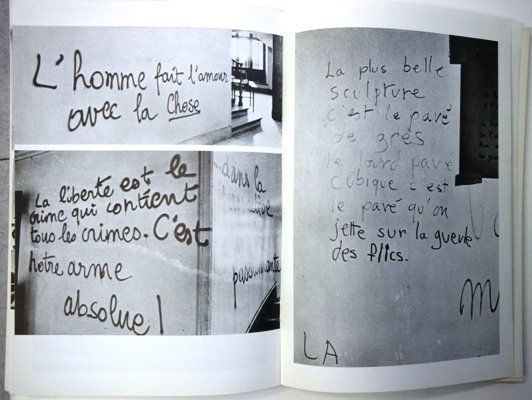 L'homme fait l'amour
avec la Chose
La liberté est le
crime qui contient
tous les crimes. C'est
notre arme
absolue!
dans la
La plus belle
sculpture
c'est le pavé
de grès
le lourd pavé
cubique c'est
le pavé qu'on
jette sur la gueule
des flics.
M
LA